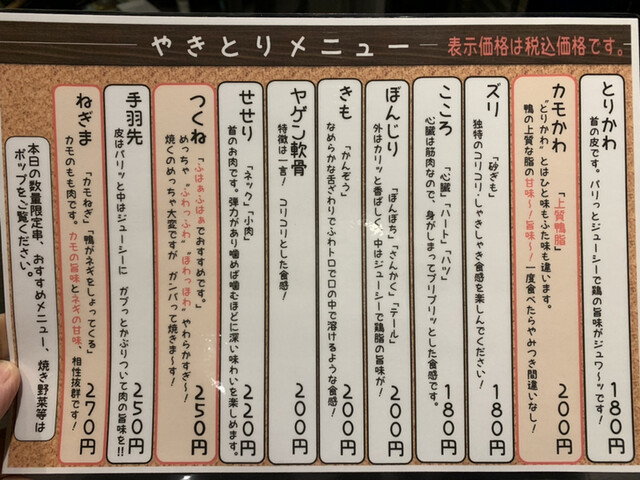 やきとりメニュー
表示価格は税込価格です。
とりかわ
首の皮です。パリっとジューシーで鶏の旨味がジュワ〜ッです！
180円
カモかわ
「上質鴨脂」
"とりかわ"とはひと味もふた味も違います。
鴨の上質な脂の甘味〜！旨味〜！一度食べたらやみつき間違いなし！
200円
ズリ
「砂ぎも」
独特のコリコリ・しゃきしゃき食感を楽しんでください！
180円
こころ
「心臓」「ハート」「ハツ」
心臓は筋肉なので、身がしまってプリプリッとした食感です。
180円
ぼんじり
「ぼんぼち」「さんかく」「テール」
外はカリッと香ばしく、中はジューシーで鶏脂の旨味が！
200円
きも
「かんぞう」
なめらかな舌ざわりでふわトロで口の中で溶けるような食感！
200円
ヤゲン軟骨
特徴は一言！ コリコリとした食感！
200円
せせり
「ネック」「小肉」
首のお肉です。弾力があり噛めば噛むほどに深い味わいを楽しめます。
220円
つくね
「ふはぁふはぁ」でおすすめです。
めっちゃ"ふわっふわっ""ほわっほわっ"やわらかすぎ〜！
焼くのめっちゃ大変ですが ガンバって焼きま〜す！
250円
手羽先
皮はパリッと中はジューシーに ガブっとかぶりついて肉の旨味を!!
250円
ねぎま
「カモねぎ」「鴨がネギをしょってくる」
カモのもも肉です。カモの旨味とネギの甘味、相性抜群です！
270円
本日の数量限定串、おすすめメニュー、焼き野菜等は
ポップをご覧ください。